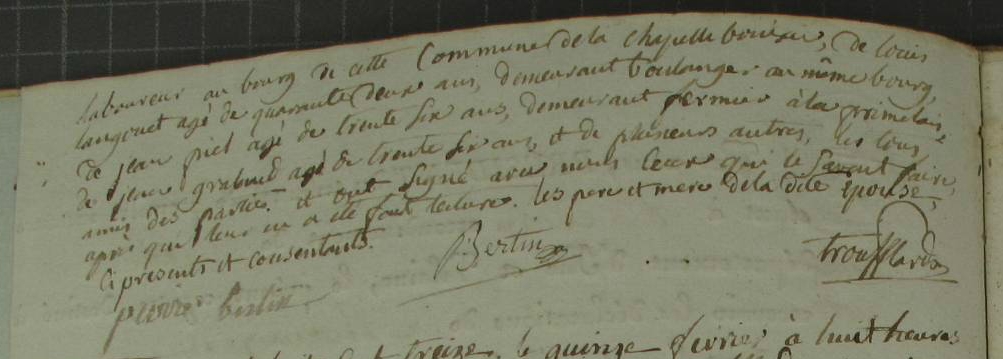 laboureur au bourg de cette Commune de la chapelle de louis
langouet agé de quarante deux ans, demeurant boulanger au même bourg,
de jean piel agé de trente six ans, demeurant fermier à la
de jean agé de trente six ans, et de plusieurs autres, les tous
amis des parties. et ont signé avec nous ceux qui le savent faire,
après que leur en a été fait lecture. les pere et mere de la dite épouse,
ci presents et consentants.
Bertin
pierre bertin
treize, le quinze février à huit heures